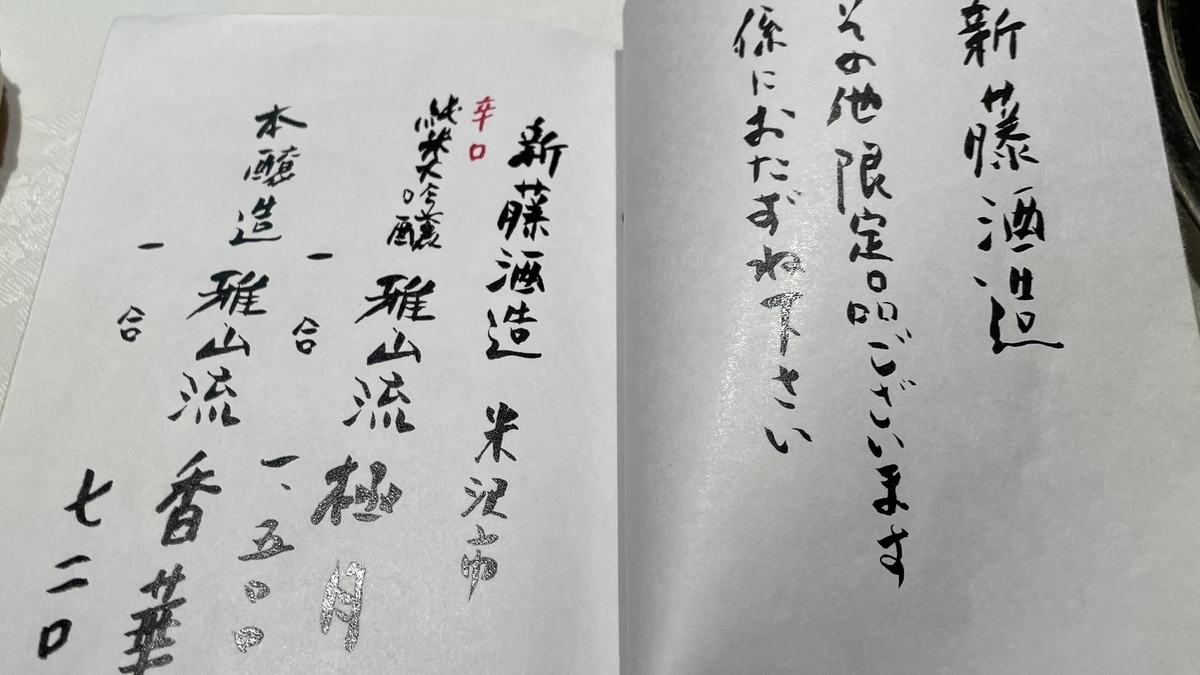 新藤酒造
その他限定品ございます
係におたずね下さい
新藤酒造 米沢市
辛口
純米大吟醸 雅山流 極月
一合 一、五〇〇
本醸造 雅山流 香華
一合 七二〇